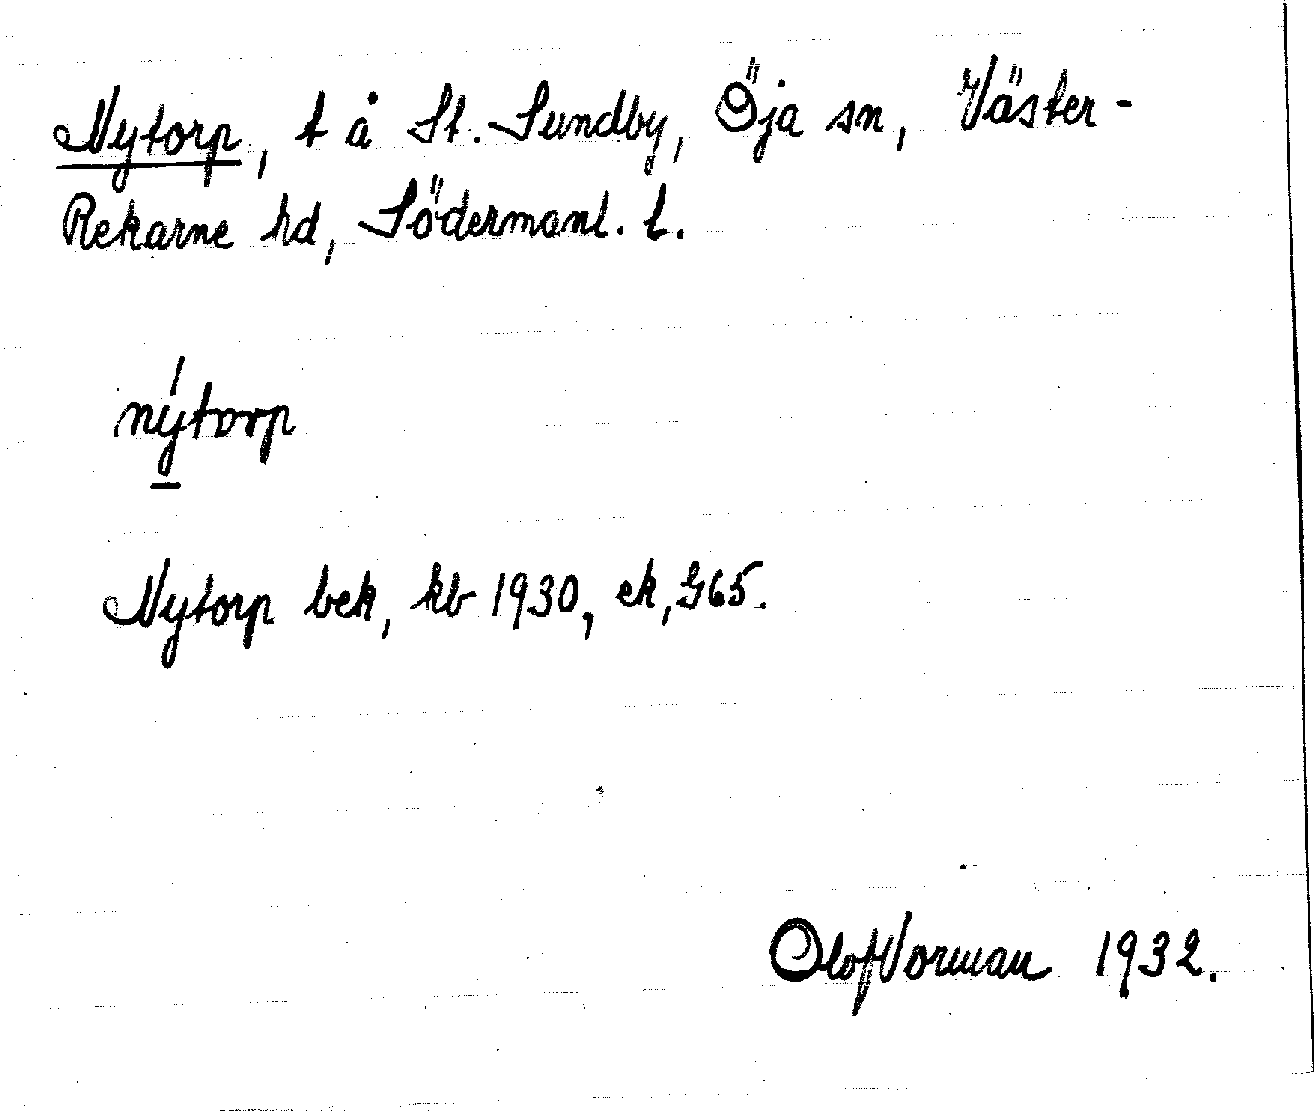 Nytorp, t å St. Sundby, Öja sn, Väster-
Rekarne hd, Södermanl. l.
nýtorp
Nytorp bek, kb 1930, ek, G65.
Olof Norman 1932.